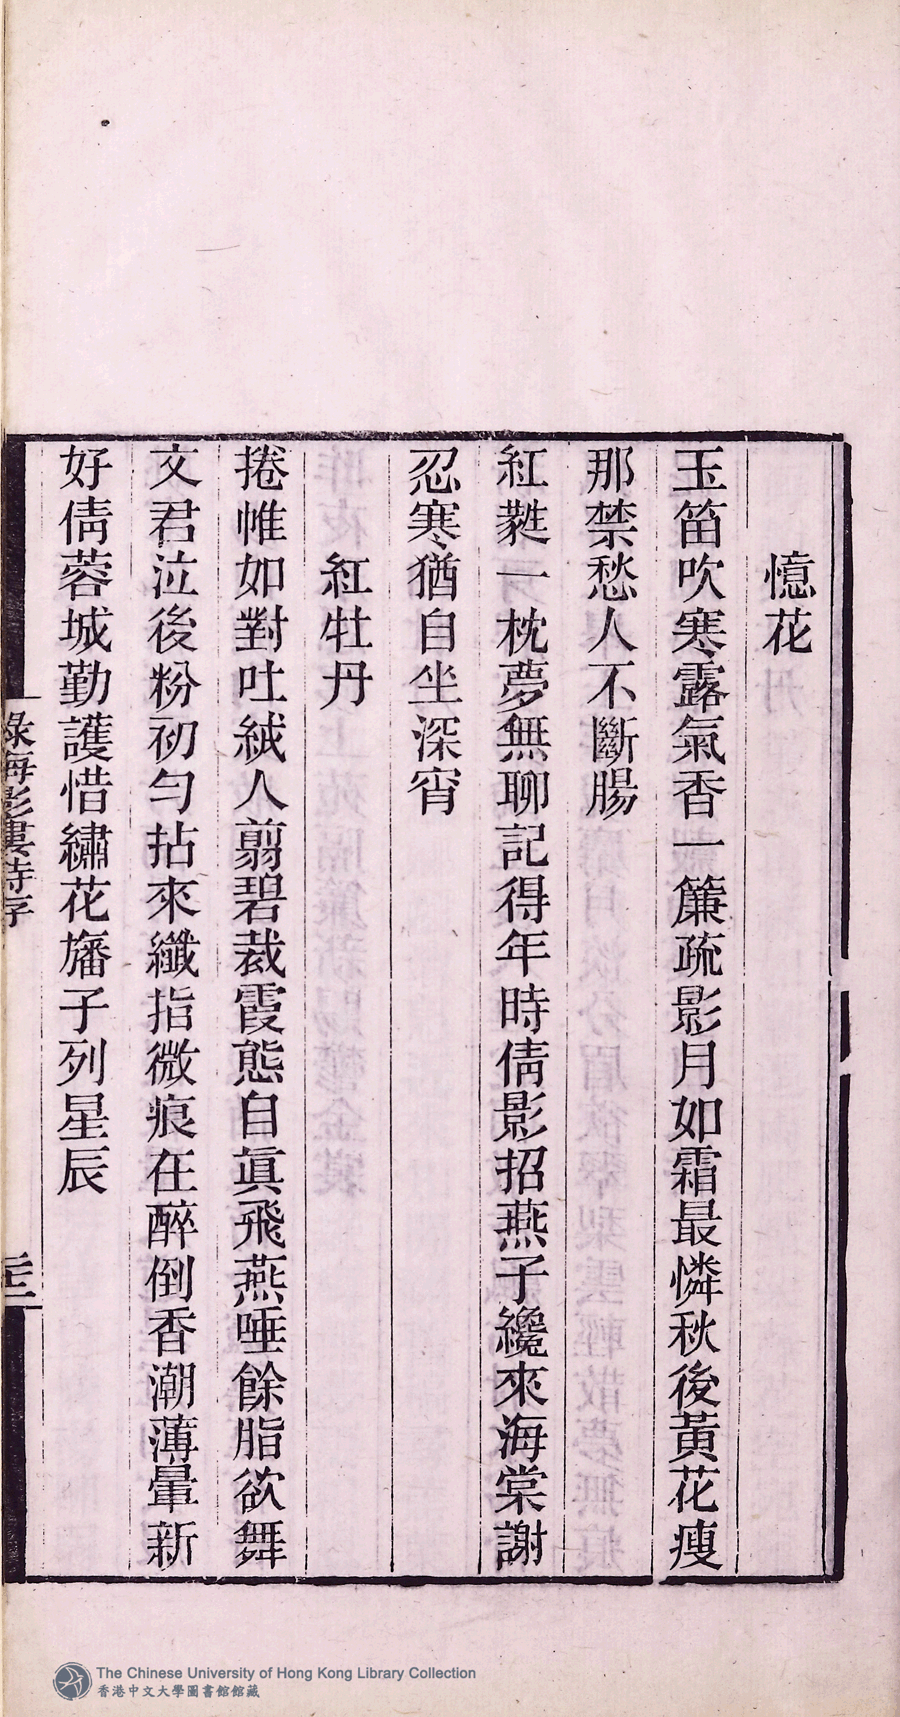 憶花
玉笛吹寒露氣香一簾疏影月如霜最憐秋後黃花瘦
那禁愁人不斷腸
紅蕤一枕夢無聊記得年時倩影招燕子纔來海棠謝
忍寒猶自坐深宵
紅牡丹
捲帷如對吐絨人翦碧裁霞態自眞飛燕唾餘脂欲舞
文君泣後粉初勻拈來纖指微痕在醉倒香潮薄暈新
好倩蓉城勤護惜繡花旛子列星辰
The Chinese University of Hong Kong Library Collection
香港中文大學圖書館館藏